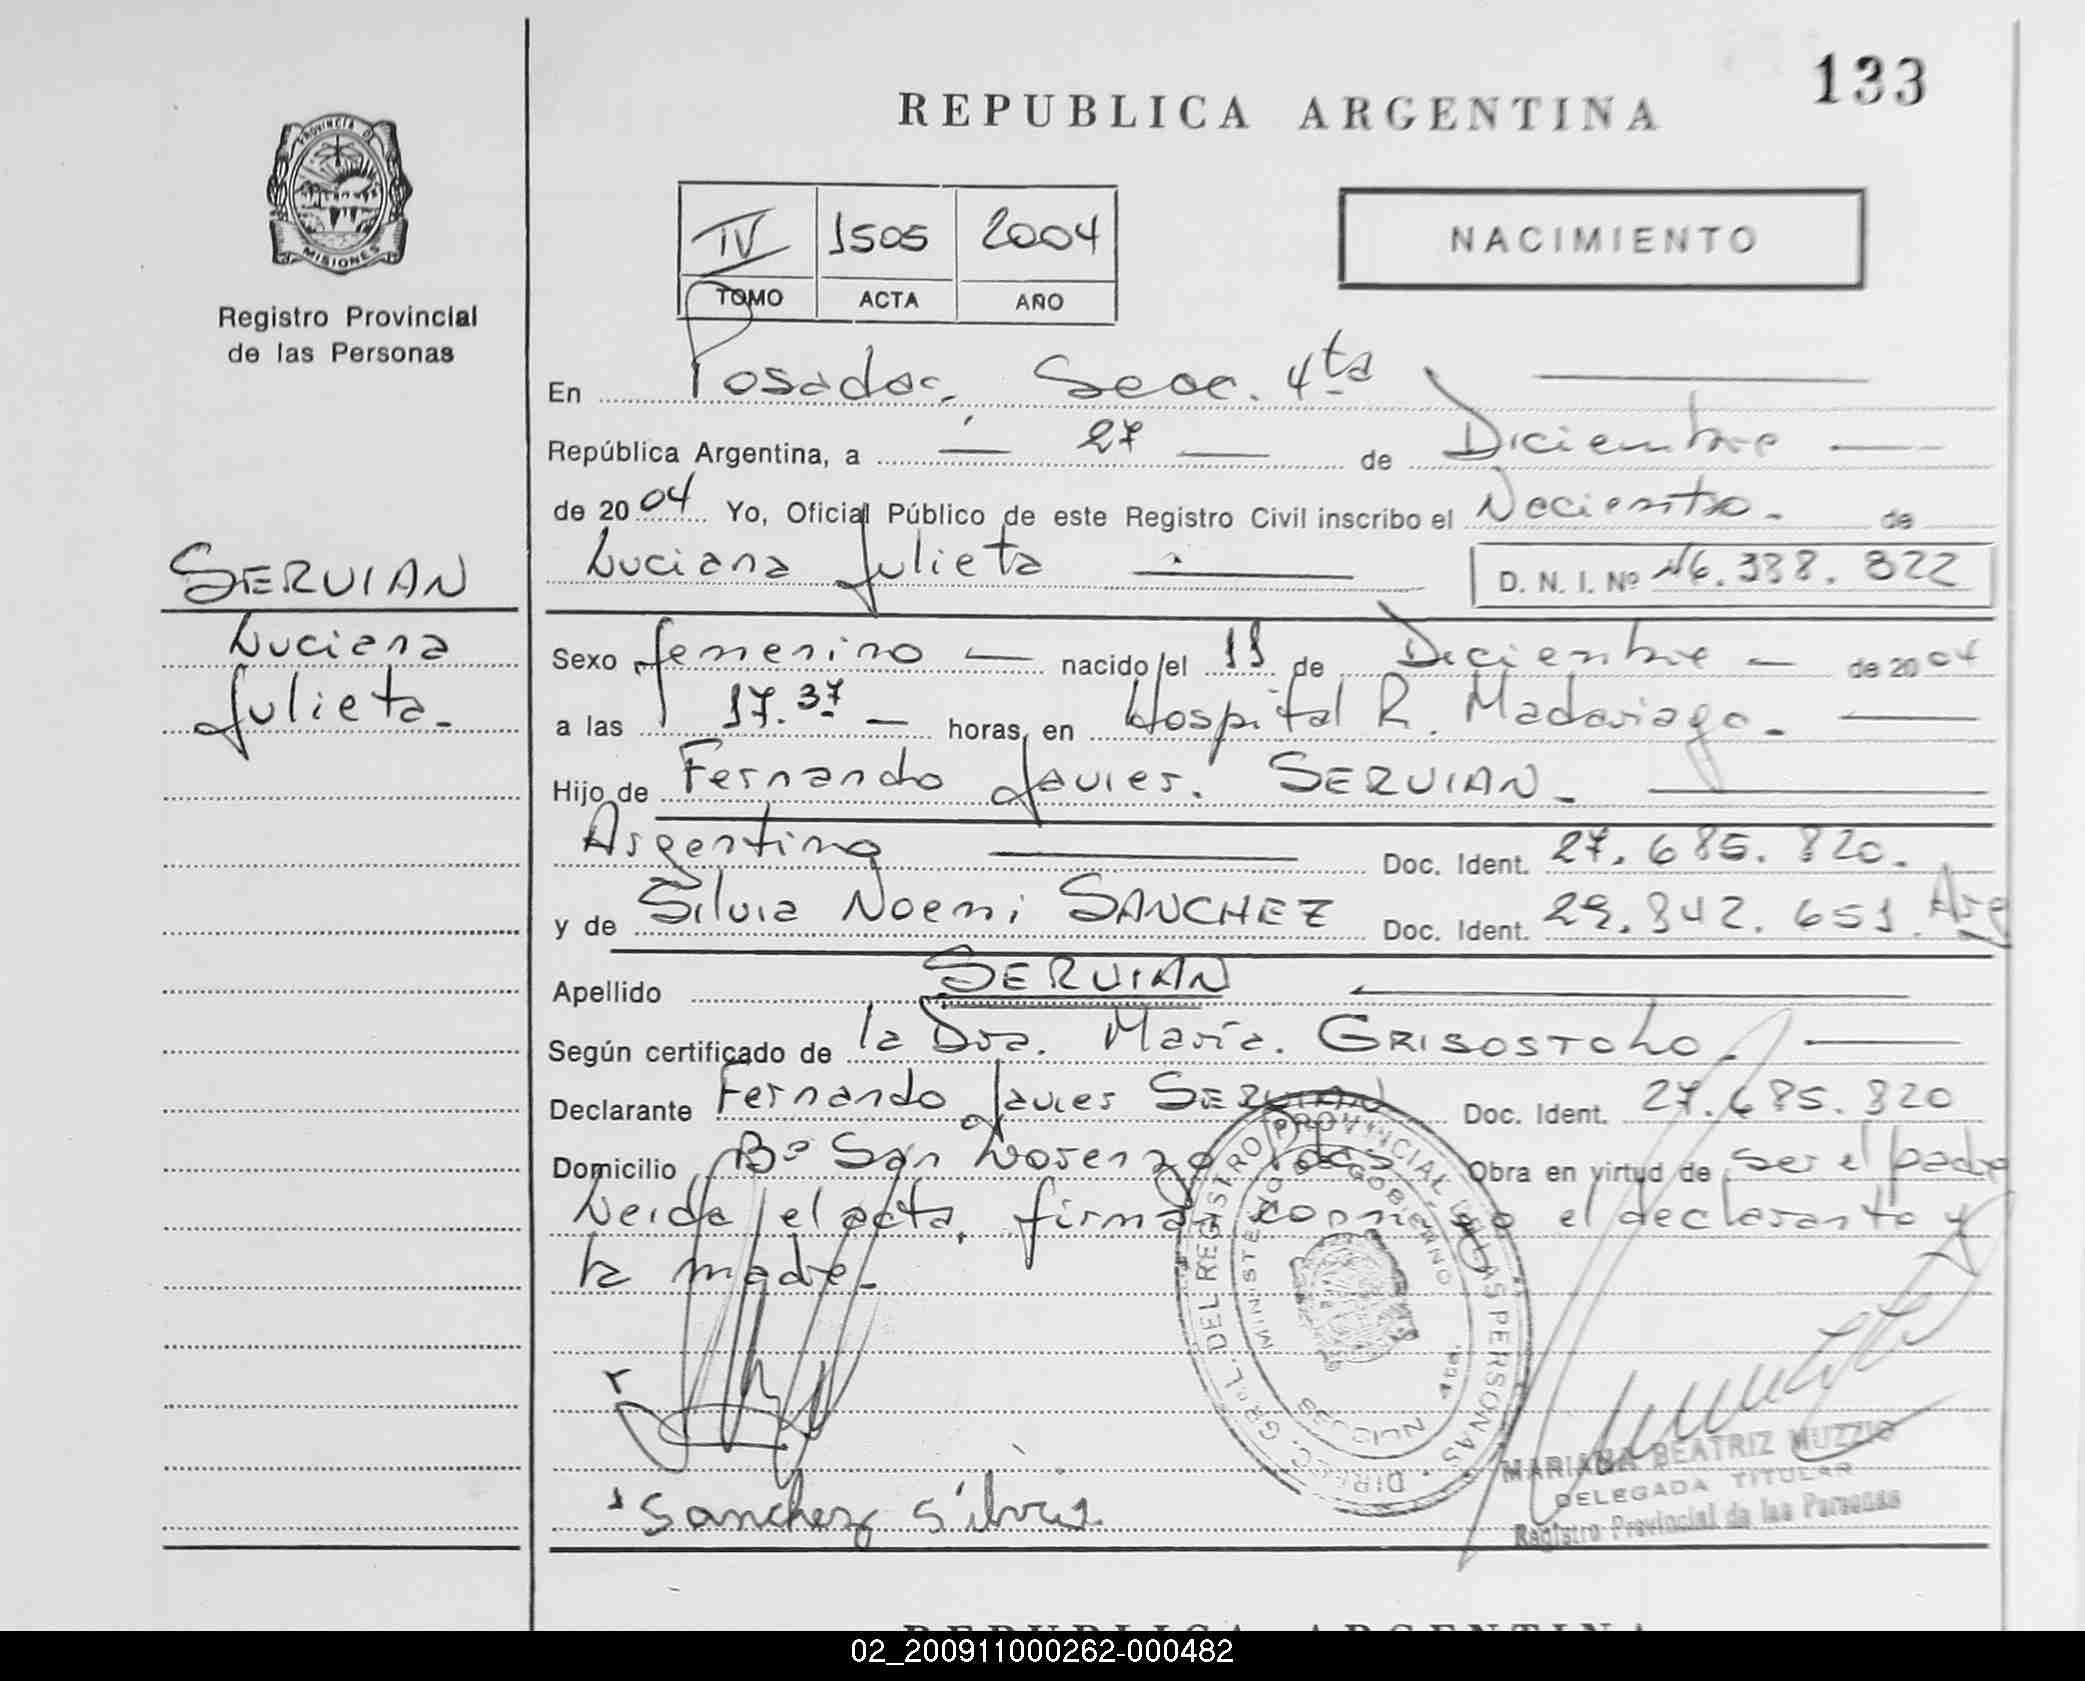 133
REPUBLICA ARGENTINA
PROVINCIA DE
MISIONES
Registro Provincial
de las Personas
IV 1505 2004
TOMO ACTA AÑO
NACIMIENTO
En Posadas, Secc. 4ta
República Argentina, a 27 de Diciembre
de 2004 Yo, Oficial Público de este Registro Civil inscribo el Nacimiento. de
Luciana Julieta D. N. I. Nº 46.338.822
SERVIAN
Luciana
Julieta.
Sexo femenino nacido el 11 de Diciembre de 2004
a las 17.37 horas, en Hospital R. Madariaga.
Hijo de Fernando Javier. SERVIAN
Argentino Doc. Ident. 27.685.820.
y de Silvia Noemi SANCHEZ Doc. Ident. 29.842.651. Arg
Apellido SERVIAN
Según certificado de la Dra. María. GRISOSTOMO.
Declarante Fernando Javier SERVIAN Doc. Ident. 27.685.820
Domicilio Bº San Lorenzo Pdas Obra en virtud de ser el padre
Leida el acta, firman conmigo el declarante y
la madre.
DIREC. GRAL. DEL REGISTRO PROVINCIAL DE LAS PERSONAS
MINISTERIO DE GOBIERNO
Sanchez Silvia
MARIANA BEATRIZ MUZZIO
DELEGADA TITULAR
Registro Provincial de las Personas
REPUBLICA ARGENTINA
02_200911000262-000482